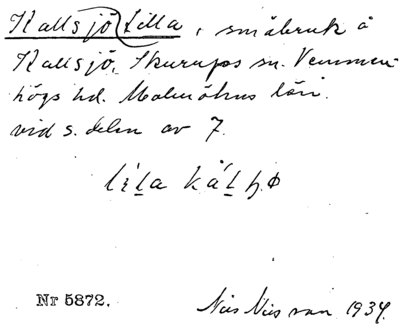 Kallsjö Lilla, småbruk å
Kallsjö, Skurups sn. Vemmen-
högs hd. Malmöhus län.
vid s. delen av 7.
Nr 5872.
Nils Nilsson 1934.